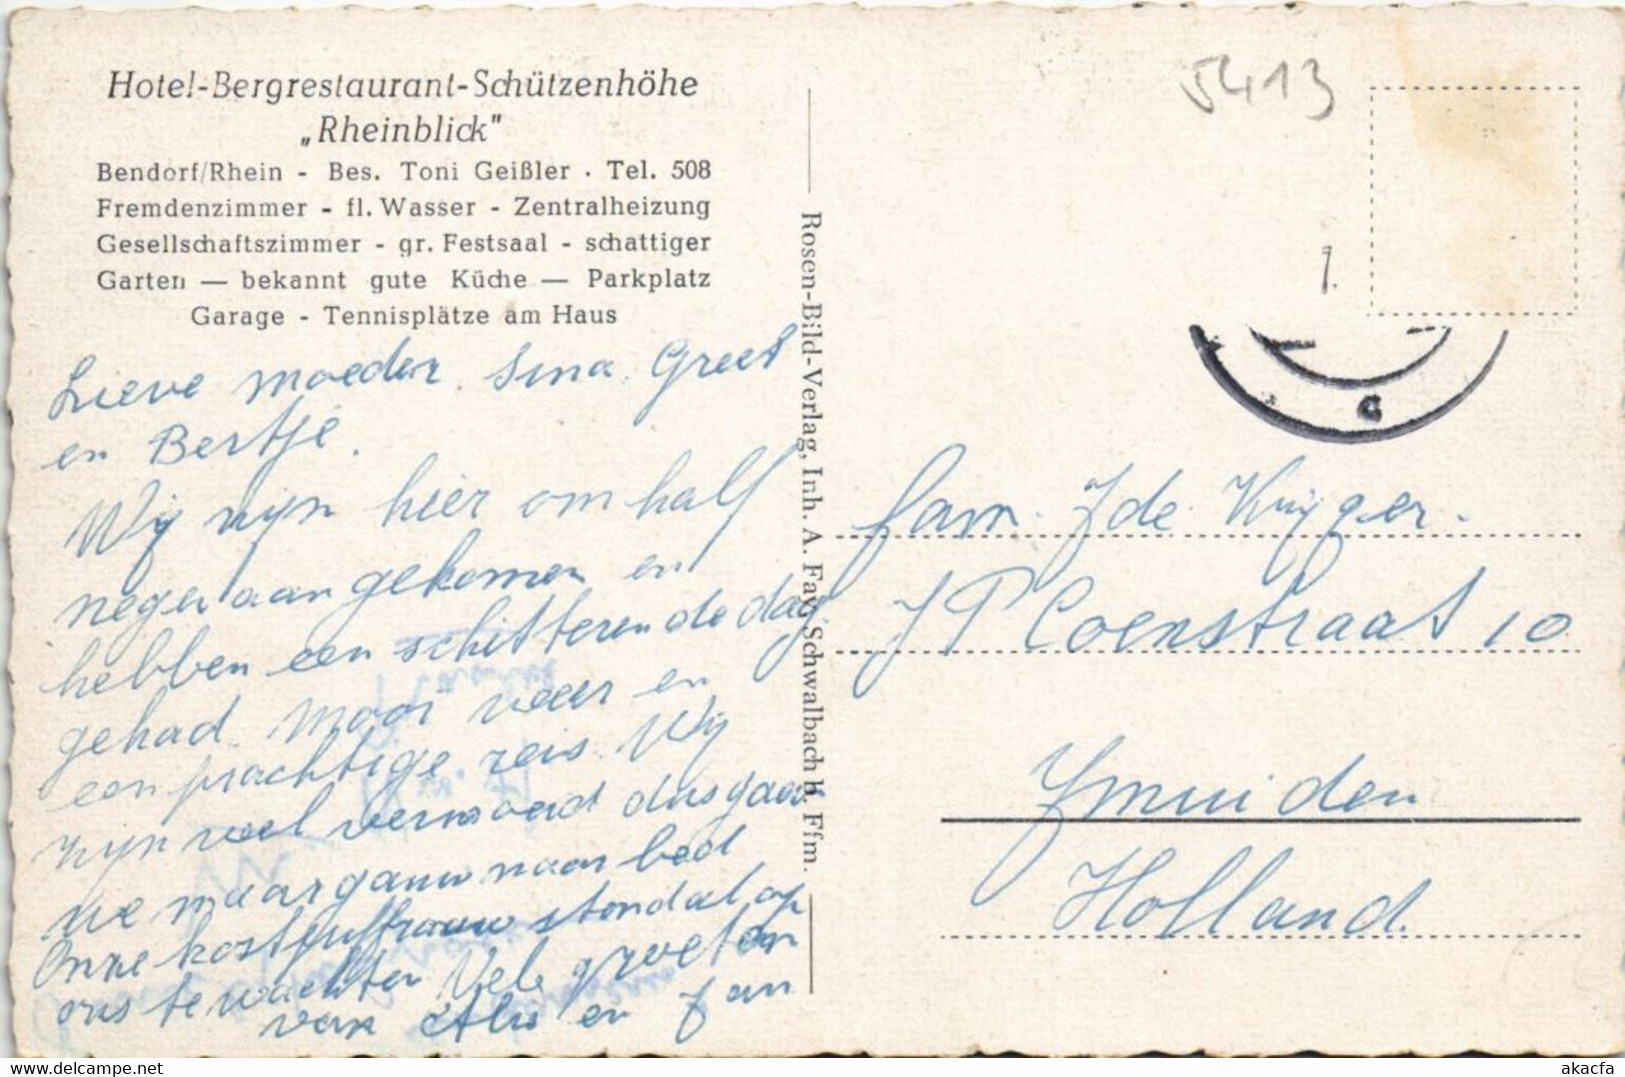 Hotel-Bergrestaurant-Schützenhöhe
„Rheinblick"
Bendorf/Rhein - Bes. Toni Geißler · Tel. 508
Fremdenzimmer - fl. Wasser - Zentralheizung
Gesellschaftszimmer - gr. Festsaal - schattiger
Garten — bekannt gute Küche — Parkplatz
Garage - Tennisplätze am Haus
Lieve moeder. Sina. Greet
en Bertje.
Wij zijn hier om half
negen aangekomen en
hebben een schitterende dag
gehad. Mooi weer en
een prachtige reis. Wij
zijn wel vermoeid dus gaan
we maar gauw naar bed
Onze kostjuffrouw stond al op
ons te wachten Vele groeten
van en Jan
Rosen-Bild-Verlag, Inh. A. Fay, Schwalbach b. Ffm.
5413
1.
fam. J de
J P Coenstraat 10
IJmuiden
Holland.
akacfa
delcampe.net